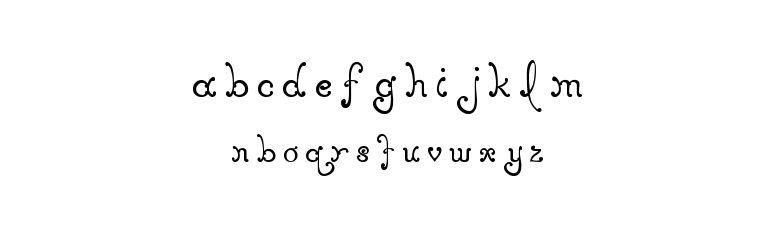 a b c d e f g h i j k l m
n b o q r s t u v w x y z